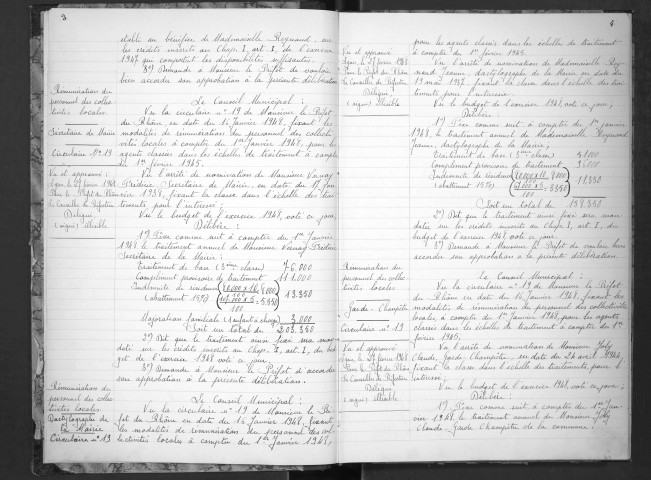 3
établi au bénéfice de Mademoiselle Reynaud, sur
les crédits inscrits au Chap. I, art. I, de l'exercice
1947 qui comportent les disponibilités suffisantes.
3°) Demande à Monsieur le Préfet de vouloir
bien accorder son approbation à la présente délibération
Rémunération du
personnel des collec
tivités locales.
Secrétaire de Mairie
Circulaire N° 19
Vu et approuvé
Lyon le 27 février 1948
Pour le Préfet du Rhône
Le Conseiller de Préfecture
Délégué
(signé) Illisible
Le Conseil Municipal :
Vu la circulaire n° 19 de Monsieur le Préfet
du Rhône en date du 16 Janvier 1948, fixant les
modalités de rémunération du personnel des collecti
vités locales à compter du 1er Janvier 1948, pour les
agents classés dans les échelles de traitement à compter
du 1er février 1945.
Vu l'arrêté de nomination de Monsieur
Frédéric Secrétaire de Mairie, en date du
1938, fixant la classe dans l'échelle des trai
tements pour l'intérieur ;
Vu le budget de l'exercice 1948, voté ce jour,
Délibère :
1°) Fixe comme suit à compter du 1er Janvier
1948 le traitement annuel de Monsieur Frédéric
Secrétaire de la Mairie :
Traitement de base (3ème classe) 76.000
Complément provisoire de traitement 111.000
Indemnité de résidence
(abattement 15%)
100
100
13.350
Majoration familiale (1 enfant à charge) 3.000
Soit un total de 203.350
2°) Dit que le traitement ainsi fixé sera man
daté sur les crédits inscrits au Chap. I, art. I, du bud
get de l'exercice 1948 voté ce jour.
3°) Demande à Monsieur le Préfet d'accorder
son approbation à la présente délibération.
Rémunération du
personnel des collec
tivités locales
Dactylographe de
la Mairie
Circulaire n° 19
Le Conseil Municipal :
Vu la circulaire n° 19 de Monsieur le Pré
fet du Rhône en date du 16 Janvier 1948, fixant
les modalités de rémunération du personnel des col
lectivités locales à compter du 1er Janvier 1948,
4
pour les agents classés dans les échelles de traitement
à compter du 1er février 1945.
Vu et approuvé
Lyon le 27 février 1948
Pour le Préfet du Rhône
Le Conseiller de Préfecture
Délégué
(signé) Illisible
Vu l'arrêté de nomination de Mademoiselle Rey
naud Jeanne, dactylographe de la Mairie en date du
fixant la classe dans l'échelle des trai
tements pour l'intérieur ;
Vu le budget de l'exercice 1948, voté ce jour ;
Délibère :
1°) Fixe comme suit à compter du 1er janvier
1948, le traitement annuel de Mademoiselle Reynaud
Jeanne, dactylographe de la Mairie ;
Traitement de base (3ème classe)
Complément provisoire de traitement
Indemnité de résidence
(abattement 15%)
100
11.350
Soit un total de
2°) Dit que le traitement ainsi fixé sera man
daté sur les crédits inscrits au Chap. I, art. I, du
budget de l'exercice 1948, voté ce jour.
3°) Demande à Monsieur le Préfet de vouloir bien
accorder son approbation à la présente délibération.
Rémunération du
personnel des collec
tivités locales
Garde-Champêtre
Circulaire n° 19
Vu et approuvé
Lyon le 27 février 1948
Pour le Préfet du Rhône
Le Conseiller de Préfecture
Délégué
(signé) Illisible
Le Conseil Municipal :
Vu la circulaire n° 19 de Monsieur le Préfet
du Rhône en date du 16 Janvier 1948, fixant les
modalités de rémunération du personnel des collectivités
locales, à compter du 1er Janvier 1948, pour les agents
classés dans les échelles de traitement à compter du 1er
février 1945,
Vu l'arrêté de nomination de Monsieur Joly
Claude, Garde-Champêtre, en date du 26 avril 1944,
fixant la classe dans l'échelle des traitements, pour l'
intérieur ;
Vu le budget de l'exercice 1948, voté ce jour ;
Délibère :
1°) Fixe comme suit à compter du 1er Jan
vier 1948 le traitement annuel de Monsieur Joly
Claude, Garde Champêtre de la commune :